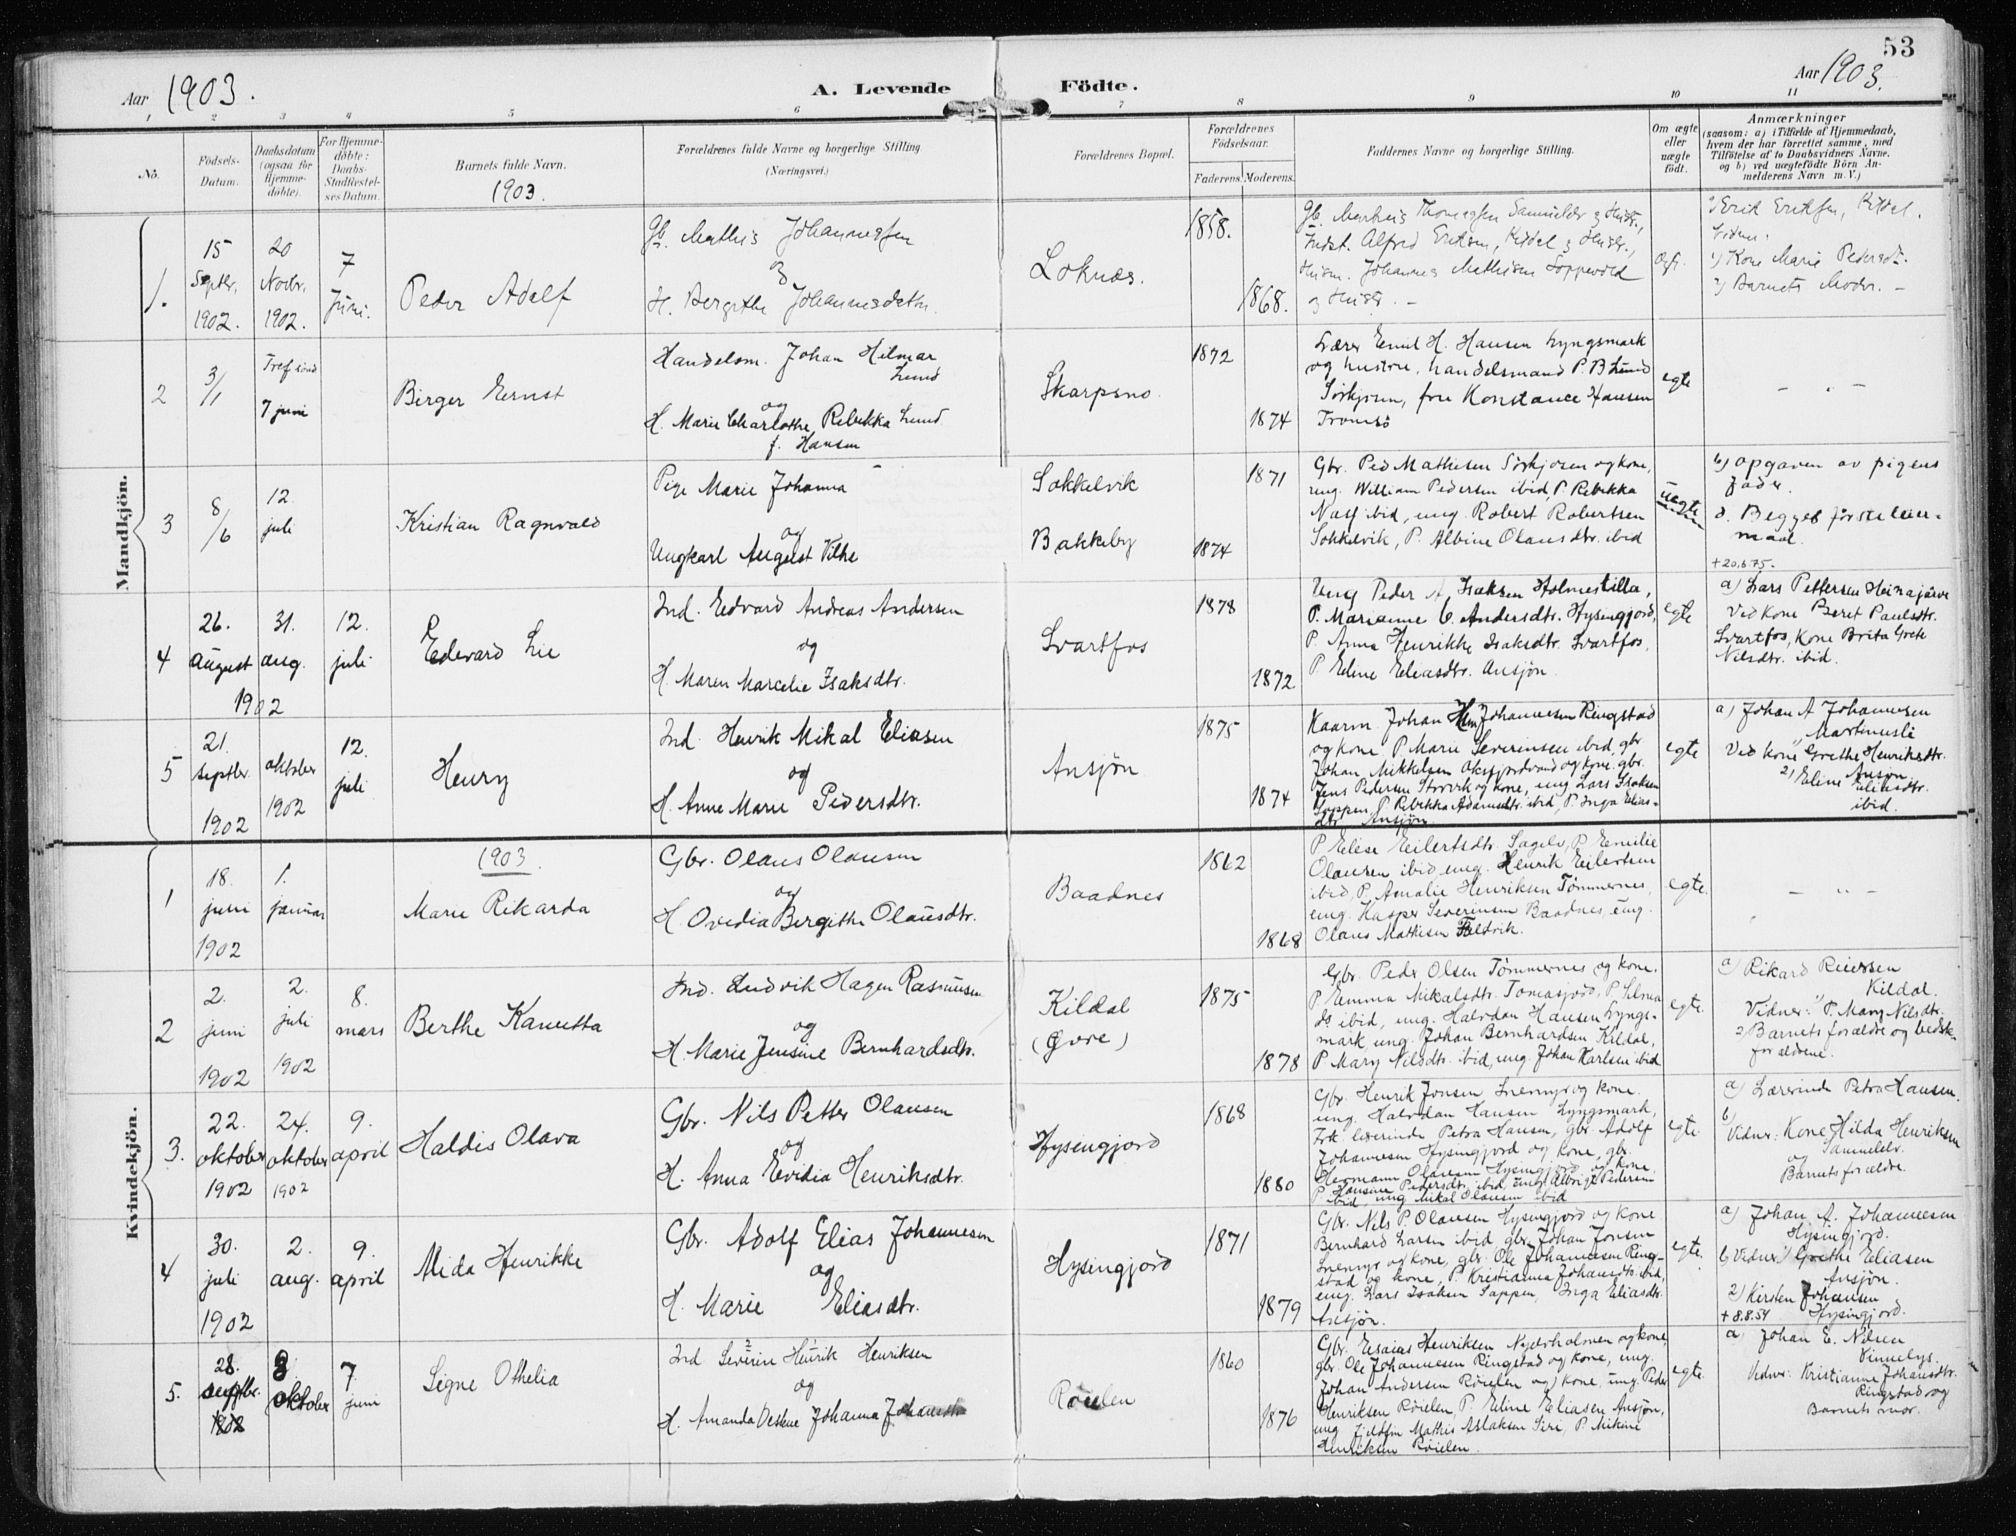 53
Aar 1903.
A. Levende Födte.
Aar 1903.
1 2 3 4 5 6 7 8 9 10 11
No.
Födsels-
Datum.
Daabsdatum
(ogsaa for
Hjemme-
döbte).
For Hjemme-
döbte:
Daabs-
Stadfæstel-
ses Datum.
Barnets fulde Navn.
1903.
Forældrenes fulde Navne og borgerlige Stilling
(Næringsvei.)
Forældrenes Bopæl.
Forældrenes
Födselsaar.
Faderens. Moderens.
Faddernes Navne og borgerlige Stilling.
Om ægte
eller
uægte
födt.
Anmærkninger
(saasom: a) i Tilfælde af Hjemmedaab,
hvem der har forrettet samme, med
Tilföielse af to Daabsvidners Navne.
og b) ved uægtefödte Börn An-
melderens Navn m. V.)
Mandkjön.
1.
15
Septbr.
1902.
20
Novbr.
1902.
7
Juni.
Peder Adolf
Gb. Mathis Johannessen
og
H. Bergithe Johannesdatter
Loknæs.
1858.
1868.
Gb. Markus Thomassen Samuelelv og Hustr.,
Indst. Alfred Eriksen, Kildal og Hustr.,
Husm. Johannes Mathisen Soppevold
og Hustr. –
ægte.
1) Erik Eriksen, Kildal.
Vidner:
1) Kone Marie Pedersdt.
2) Barnets Moder. –
2
3/1
Tref sönd
7 juni
Birger Ernst
Handelsm. Johan Hilmar
Lund
og
H. Marie Charlothe Rebekka Lund
f. Hansen
Skarpsno.
1872
1874
Lærer Emil H. Hansen Lyngsmark
og hustru, handelsmand P. B Lund
Sörkjosen, fru Konstance Hansen
Tromsö
egte
– " –
3
8/6
12
juli
Kristian Ragnvald
Pige Marie Johanna
og
Ungkarl August Vilhe
Sokkelvik
Bakkeby
1871
1874
Gbr. Ped Mathisen Sörkjosen og kone,
ung. William Pedersen ibid, P. Rebekka
Nass ibid, ung. Robert Robertsen
Sokkelvik, P. Albine Olausdtr. ibid
uegte
b) opgaven av pigens
fader.
d. Begges förste leier-
maal.
+20.6.75.
4
26.
august
31.
aug.
1902
12.
juli
Edevard Lie
Ind. Edvard Andreas Andersen
og
H. Maren Marcelie Isaksdtr.
Svartfos
1878
1872
Ung Peder A. Isaksen Holmestilla,
P. Marianne C. Andersdtr. Hysingjord,
P. Anna Henrikke Isaksdtr. Svartfos,
P. Eline Eliasdtr. Ansjön.
egte
a) Lars Pettersen Heinajärve
Vid Kone Beret Paulsdtr.
Svartfos, Kone Brita Grete
Nilsdtr. ibid.
5
21.
septbr.
1902
oktober
1902
12.
juli
Henry
Ind. Henrik Mikal Eliasen
og
H. Anne Marie Pedersdtr.
Ansjön
1875
1874
Kaarm Johan Johannesen Ringstad
og kone P. Marie Severinsen ibid, gbr
Johan Mikkelsen Oksfjordvand og kone, gbr.
Jens Pedersen Storvik og kone, ung Lars Isaksen
Sappen, P. Rebekka Adamsdtr. ibid, P. Inga Elias-
dtr. Ansjön.
egte
a) Johan A Johannesen
Martinusli
Vid Kone Grethe Henriksdtr.
Ansjön
2) Eline Eliasdtr.
ibid.
Kvindekjön.
1
18.
juni
1902
1.
januar
1903.
Marie Rikarda
Gbr. Olaus Olausen
og
H. Ovedia Bergithe Olausdtr.
Baadnes
1862
1868
P Elise Eilertsdtr. Sagelv, P. Emilie
Olausen ibid, ung. Henrik Eilertsen
ibid, P. Amalie Henriksen Tømmernes,
ung. Kasper Severinsen Baadnes, ung.
Olaus Mathisen Fældvik.
egte.
– " –
2
2.
juni
1902
2.
juli
1902
8.
mars
Berthe Kanutta
Ind. Ludvik Hagen Rasmusen
og
H. Marie Jensine Bernhardsdtr.
Kildal
(Øvre)
1875
1878
Gbr. Peder Olsen Tømmernes og kone.
P. Emma Mikalsdtr. Tomasjord, P. Selma
ds ibid, ung. Halvdan Hansen Lyngs-
mark ung. Johan Bernhardsen Kildal,
P Mary Nilsdtr. ibid, ung Johan Karlsen ibid
egte.
a) Rikard Reiersen
Kildal.
Vidner: " P. Mary Nilsdtr.
2) Barnets forældre og bedste-
forældrene.
3.
22.
oktober
1902
24.
oktober
1902
9.
april
Haldis Olava
Gbr. Nils Petter Olausen
og
H. Anna Evidia Henriksdtr.
Hysingjord
1868
1880
Gbr. Henrik Jonsen Snemyr og kone.
ung. Halvdan Hansen Lyngsmark,
Frk lærerinde Petra Hansen, gbr. Adolf
Johannesen Hysingjord og kone, gbr.
Hermann Olausen Hysingjord og kone.
P. Hansine Pedersdtr. ibid, ung Albrigt Pedersen
ibid ung Mikal Olausen ibid
egte
a) Lærerinde Petra Hansen.
b)
Vidner: Kone Hilda Henriksen
Samuelelv.
og
Barnets forældre.
4
30.
juli
1902
2.
aug.
9.
april
Alida Henrikke
Gbr. Adolf Elias Johannesen
og
H. Marie Eliasdtr.
Hysingjord
1871
1879
Gbr. Nils P. Olausen Hysingjord og Kone
Bernhard Larsen ibid, gbr. Johan Jonsen
Snemyr og kone, gbr. Ole Johannesen Ring-
stad og kone, P. Kristianna Johansdtr. ibid,
ung. Lars Isaksen Sappen, Inga Eliasdtr.
Ansjön.
egte.
a) Johan A. Johannesen
Hysingjord.
b Vidner 1) Grethe Eliasen
Ansjön.
2) Kirsten Johansen
+8.8.54 Hysingjord.
5.
28.
septbr.
1902
8
oktober
7.
juni
Signe Othelia
Ind Severin Henrik Henriksen
og
H. Amanda Johanna
Røielen
1860
1876
Gbr. Esaias Henriksen Nyelvholmen og kone,
gbr. Ole Johannesen Ringstad og kone, ung.
Johan Andersen Røielen og kone, ung. Peder
Henriksen Røielen, P. Eline Eliasen Ansjön,
ung. Mathis Aslaksen Siri, P. Mikine
Henriksen Røielen.
egte.
a) Johan E. Nilsen
Vinnelys.
Vidner: Kristianne Johansdtr.
Ringstad og
Barnets mor.